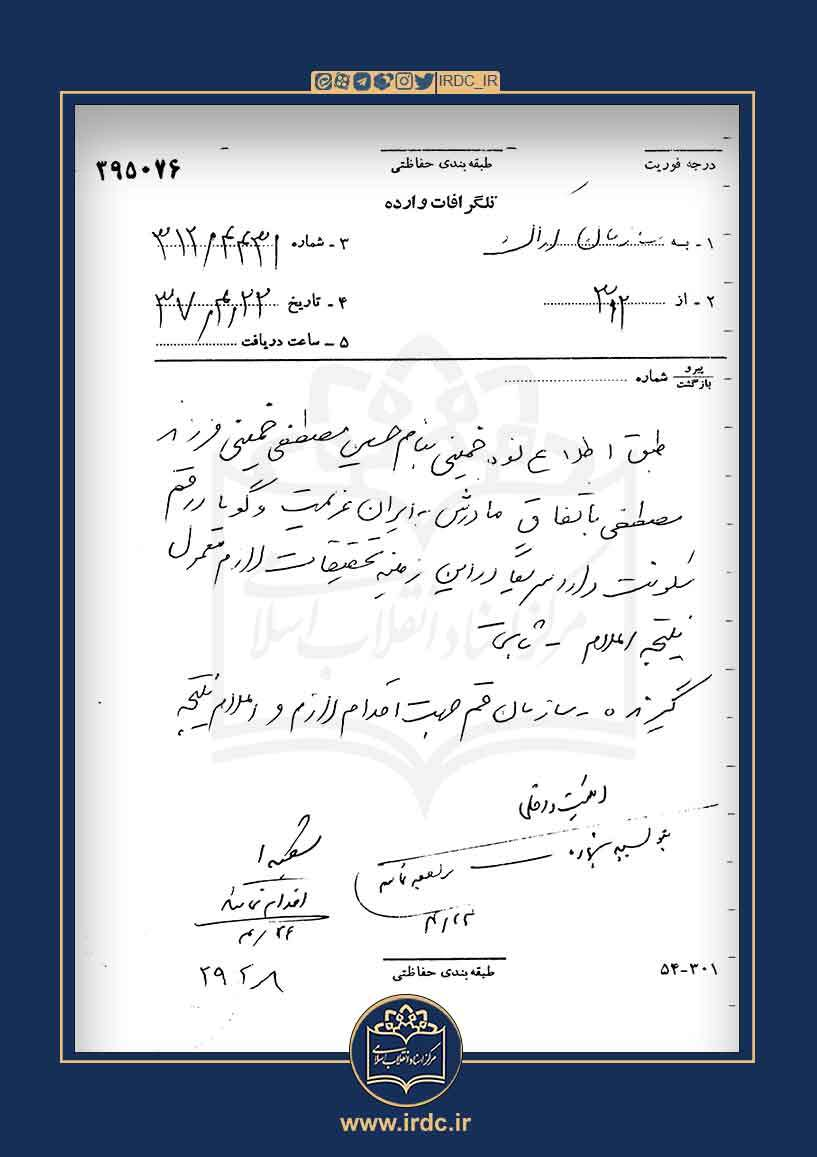 IRDC_IR
درجه فوریت
طبقه بندی حفاظتی
۳۹۵۰۷۶
تلگرافات وارده
۱- به سازمان اراک
۳- شماره ۳۱۲/۴۴۳۱
۲- از ۳۱۲
۴- تاریخ ۳۷/۴/۲۲
۵- ساعت دریافت
پیرو
بازگشت
شماره
طبق اطلاع نوه خمینی بنام حسین مصطفی خمینی فرزند
مصطفی باتفاق مادرش به ایران عزیمت و گویا در قم
سکونت دارد سریعاً در این زمینه تحقیقات لازم معمول
نتیجه اعلام - ثابتی
گیرنده - سازمان قم جهت اقدام لازم و اعلام نتیجه
امنیت داخلی
اقدام نمائید
۴/۲۳
۴/۲۴
طبقه بندی حفاظتی
۵۴-۳۰۱
مرکز اسناد انقلاب اسلامی
www.irdc.ir